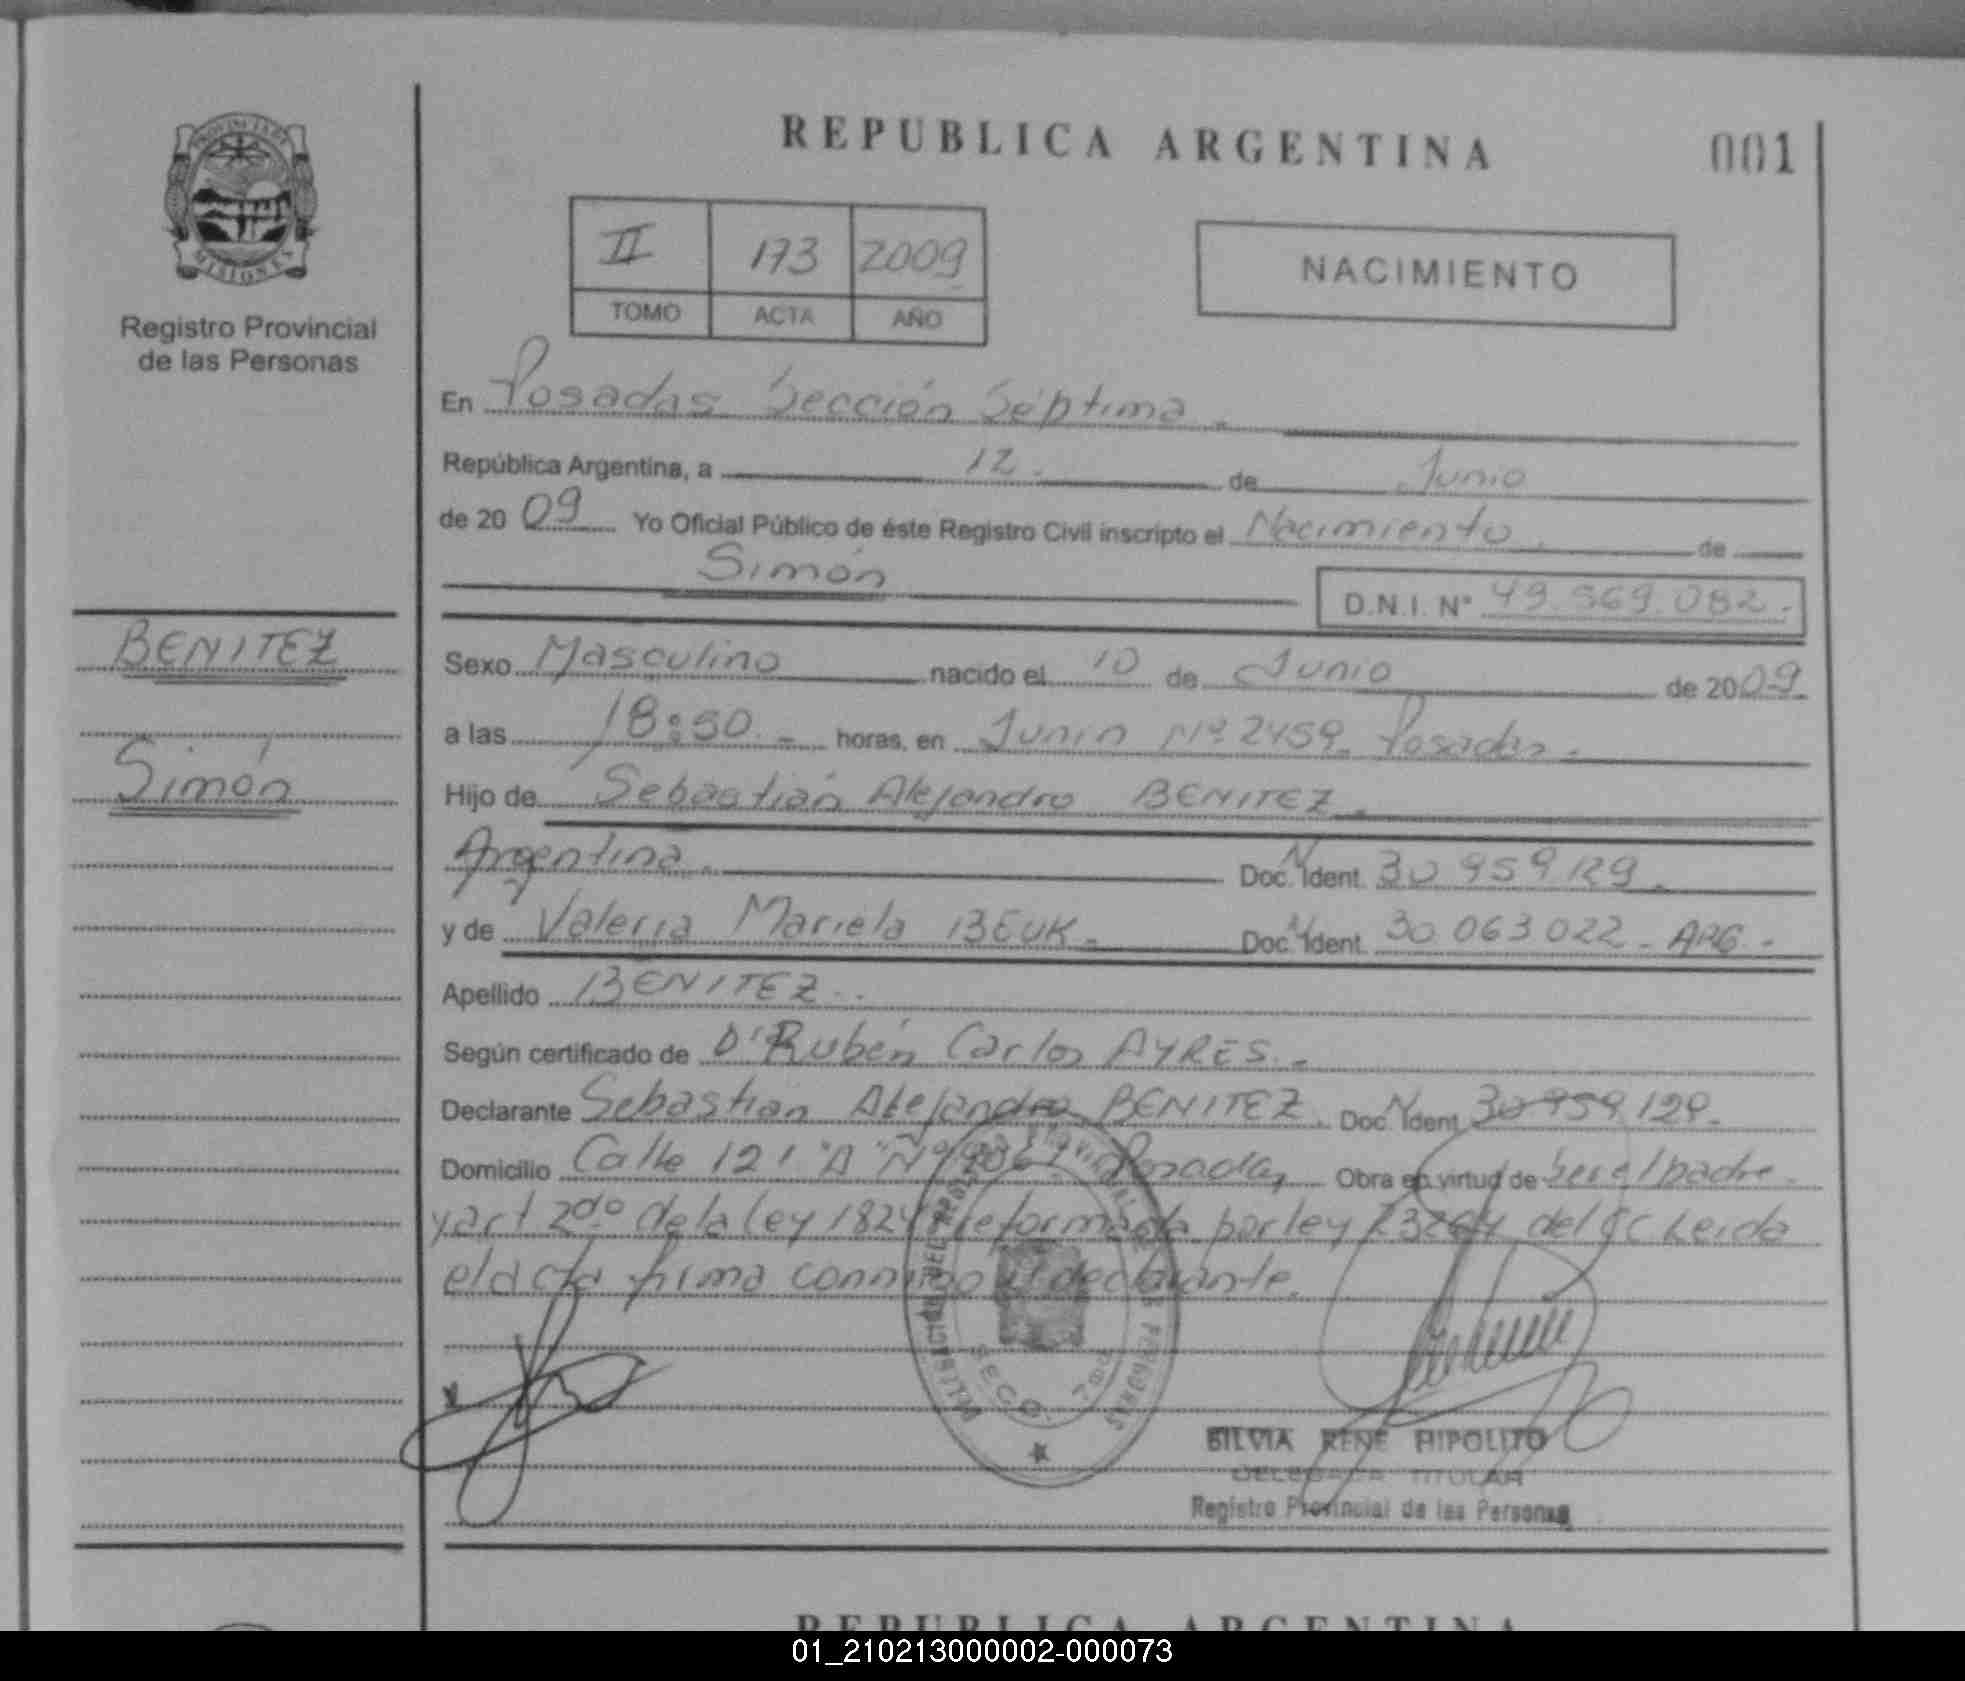 PROVINCIA DE
MISIONES
Registro Provincial
de las Personas
BENITEZ
Simón
REPUBLICA ARGENTINA
001
II 173 2009
TOMO ACTA AÑO
NACIMIENTO
En Posadas Sección Séptima.
República Argentina, a 12. de Junio
de 20 09 Yo Oficial Público de éste Registro Civil inscripto el Nacimiento. de
Simón
D.N.I. N° 49.569.082.
Sexo Masculino nacido el 10 de Junio de 2009.
a las 18:50. horas, en Junín Nº 2459. Posadas.
Hijo de Sebastián Alejandro BENITEZ.
Argentina. Doc. N Ident. 30 959 129.
y de Valeria Mariela BEUK. Doc. N Ident. 30 063 022 - ARG.-
Apellido BENITEZ.
Según certificado de Dr Rubén Carlos AYRES.
Declarante Sebastián Alejandro BENITEZ. Doc. N Ident 30 959 129.
Domicilio Calle 121 "A" Nº Posadas Obra en virtud de ser el padre.
y art 2do de la ley reformada por ley 23264 del CC Leida
el acta firma conmigo el declarante.
SECC. 7ma
SILVIA RENE HIPOLITO
DELEGADA TITULAR
Registro Provincial de las Personas
REPUBLICA ARGENTINA
01_210213000002-000073